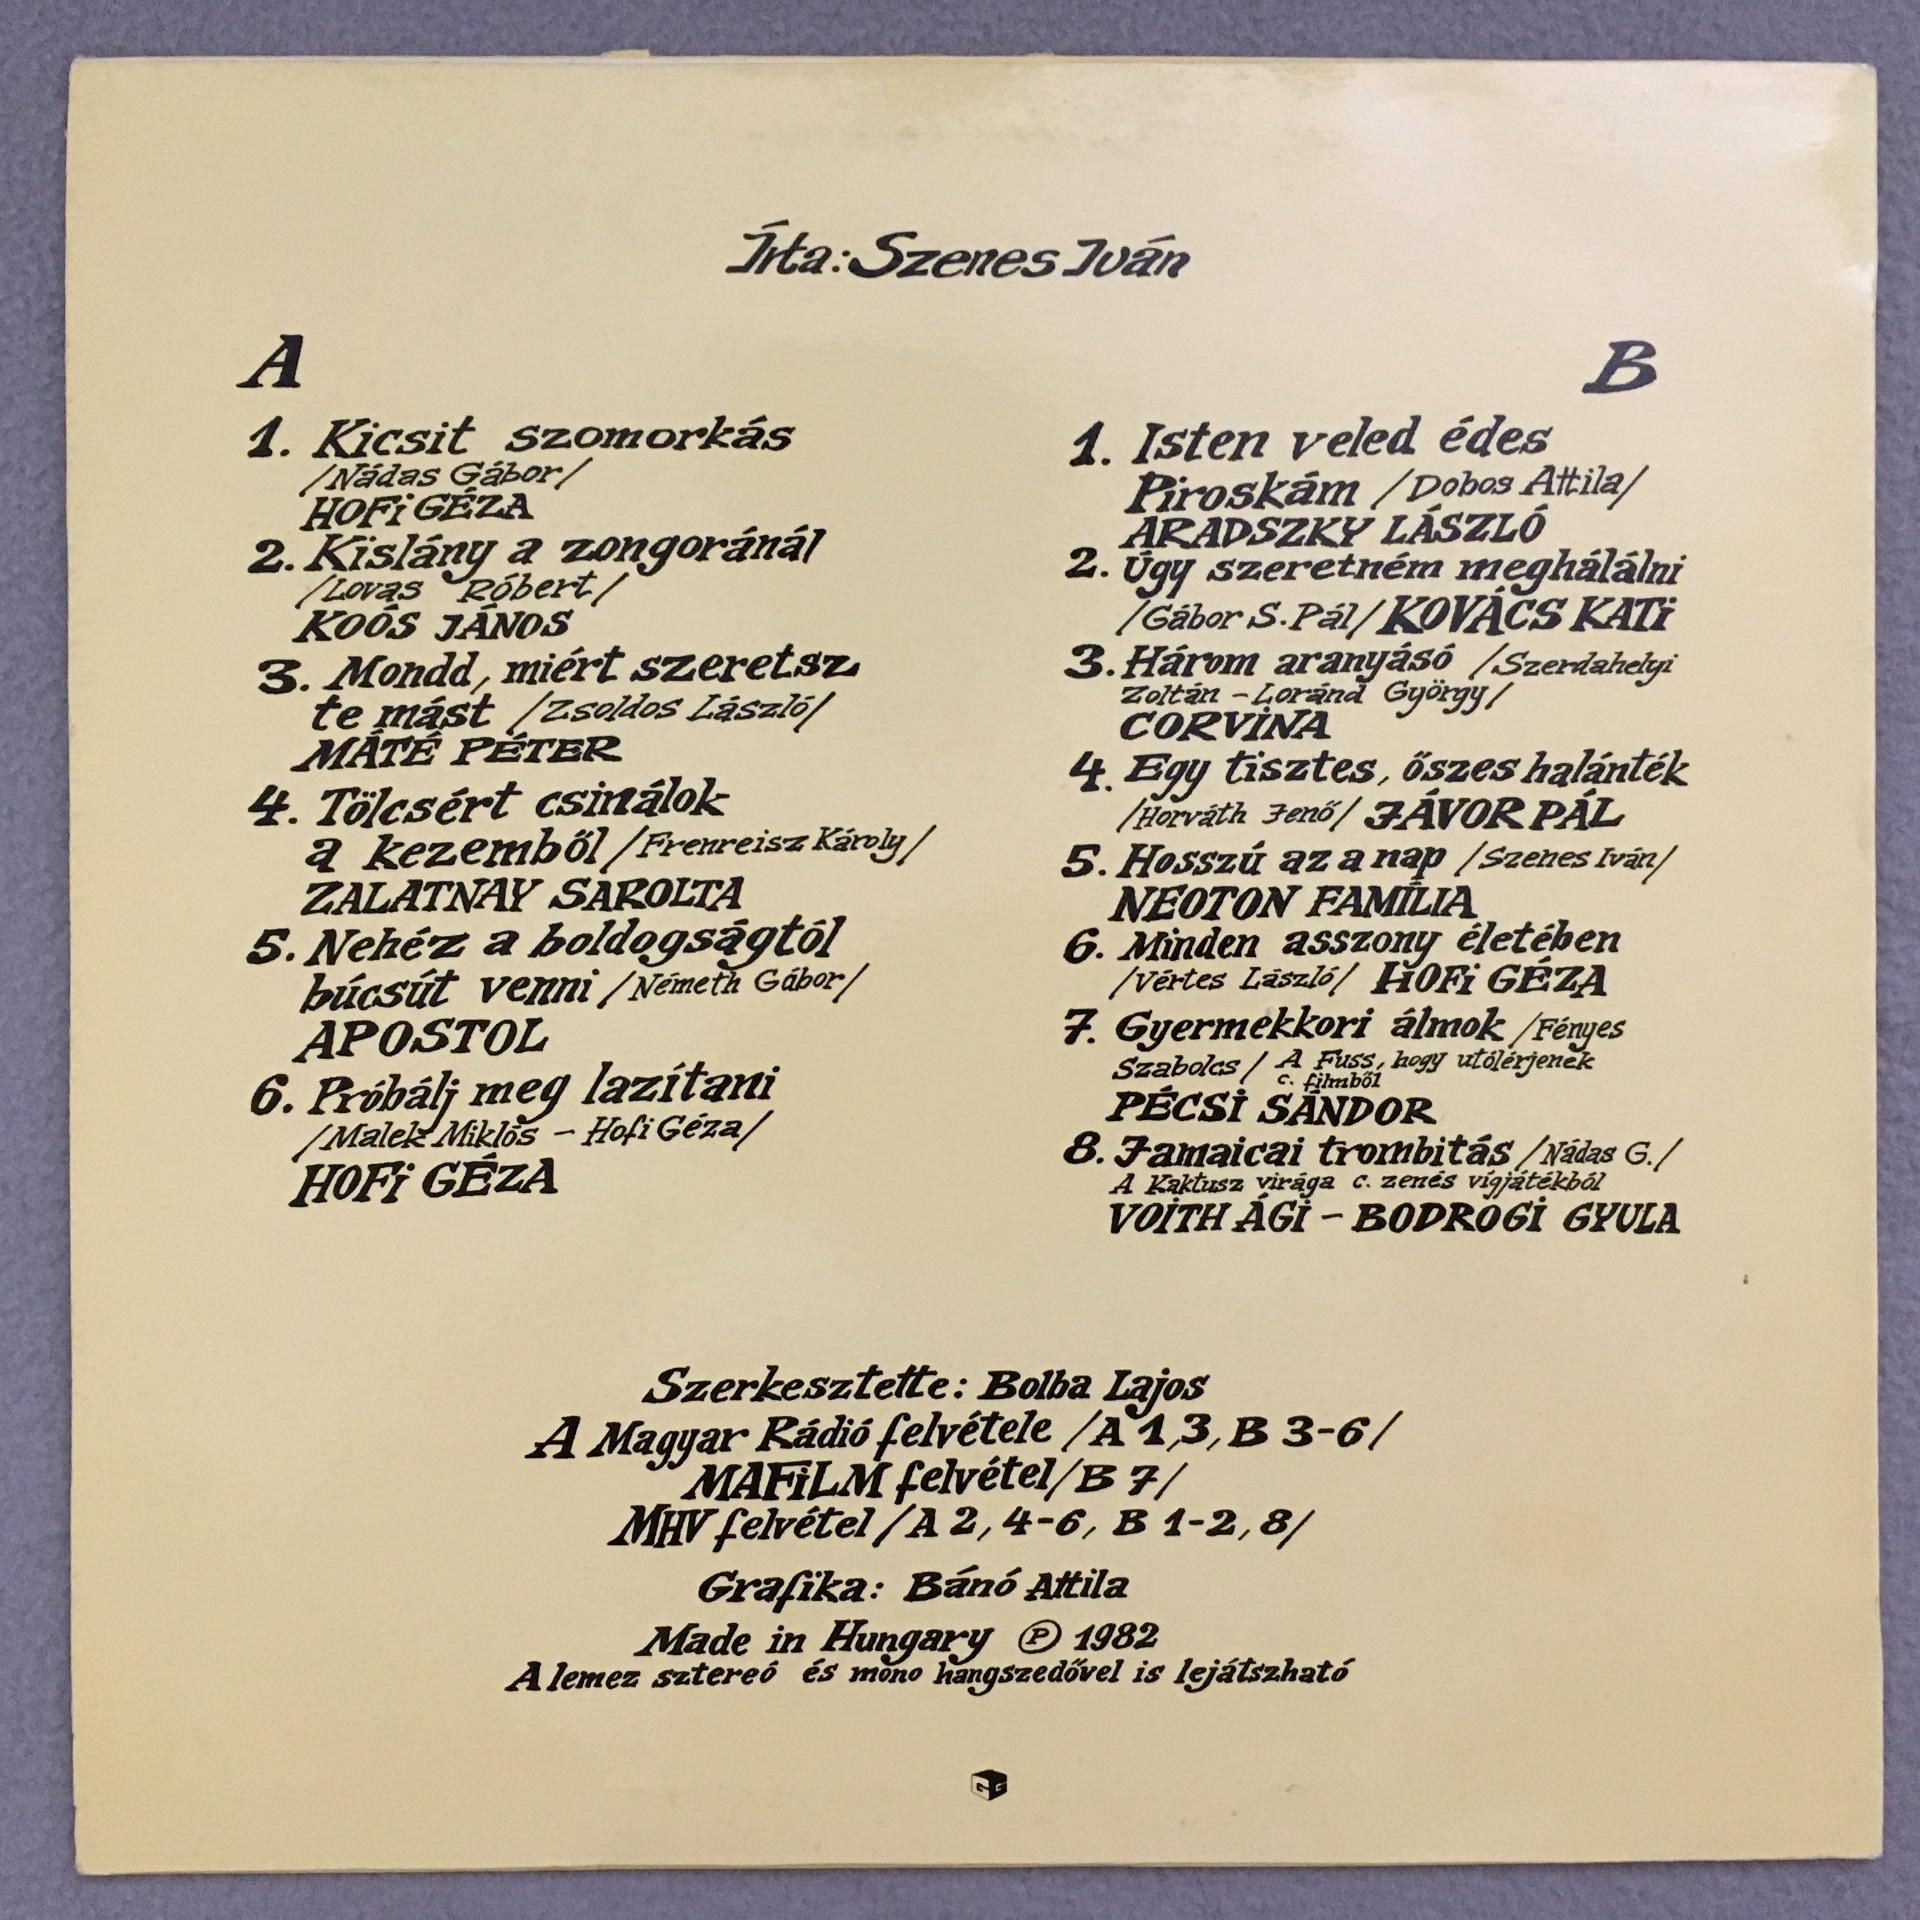 Írta: Szenes Iván
A
1. Kicsit szomorkás
/Nádas Gábor/
HOFi GÉZA
2. Kislány a zongoránál
/Lovas Róbert/
KOÓS JÁNOS
3. Mondd, miért szeretsz
te mást /Zsoldos László/
MÁTÉ PÉTER
4. Tölcsért csinálok
a kezemből /Frenreisz Károly/
ZALATNAY SAROLTA
5. Nehéz a boldogságtól
búcsút venni /Németh Gábor/
APOSTOL
6. Próbálj meg lazítani
/Malek Miklós - Hofi Géza/
HOFi GÉZA
B
1. Isten veled édes
Piroskám /Dobos Attila/
ARADSZKY LÁSZLÓ
2. Úgy szeretném meghálálni
/Gábor S. Pál/ KOVÁCS KATi
3. Három aranyásó /Szerdahelyi
Zoltán - Loránd György/
CORVINA
4. Egy tisztes, őszes halánték
/Horváth Jenő/ JÁVOR PÁL
5. Hosszú az a nap /Szenes Iván/
NEOTON FAMÍLIA
6. Minden asszony életében
/Vértes László/ HOFi GÉZA
7. Gyermekkori álmok /Fényes
Szabolcs/ A Fuss, hogy utólérjenek
c. filmből
PÉCSI SÁNDOR
8. Jamaicai trombitás /Nádas G./
A Kaktusz virága c. zenés vígjátékból
VOITH ÁGI - BODROGI GYULA
Szerkesztette: Bolba Lajos
A Magyar Rádió felvétele /A 1,3, B 3-6/
MAFiLM felvétel /B 7/
MHV felvétel /A 2, 4-6, B 1-2, 8/
Grafika: Bánó Attila
Made in Hungary Ⓟ 1982
A lemez sztereó és mono hangszedővel is lejátszható
GG